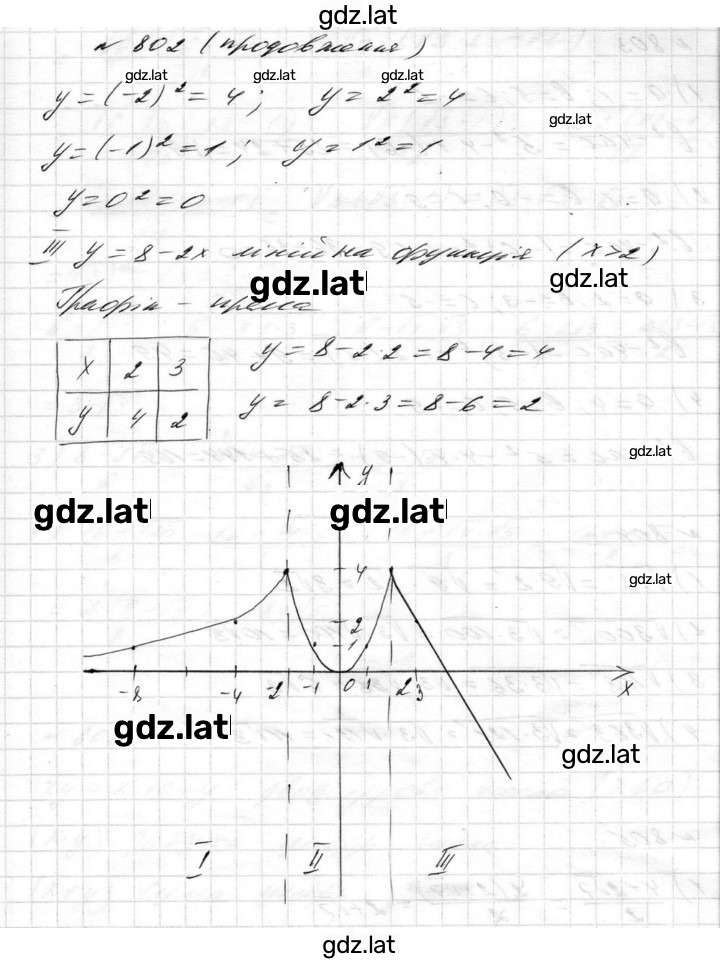 gdz.lat
№ 802 (продовження)
gdz.lat gdz.lat gdz.lat
y = (-2)² = 4; y = 2² = 4
gdz.lat
y = (-1)² = 1; y = 1² = 1
y = 0² = 0
III y = 8 - 2x лінійна функція (x > 2)
gdz.lat gdz.lat
Графік - пряма
x 2 3
y 4 2
y = 8 - 2·2 = 8 - 4 = 4
y = 8 - 2·3 = 8 - 6 = 2
gdz.lat
y
gdz.lat gdz.lat
4
gdz.lat
2
1
-8 -4 -2 -1 0 1 2 3 x
gdz.lat
gdz.lat
I II III
gdz.lat